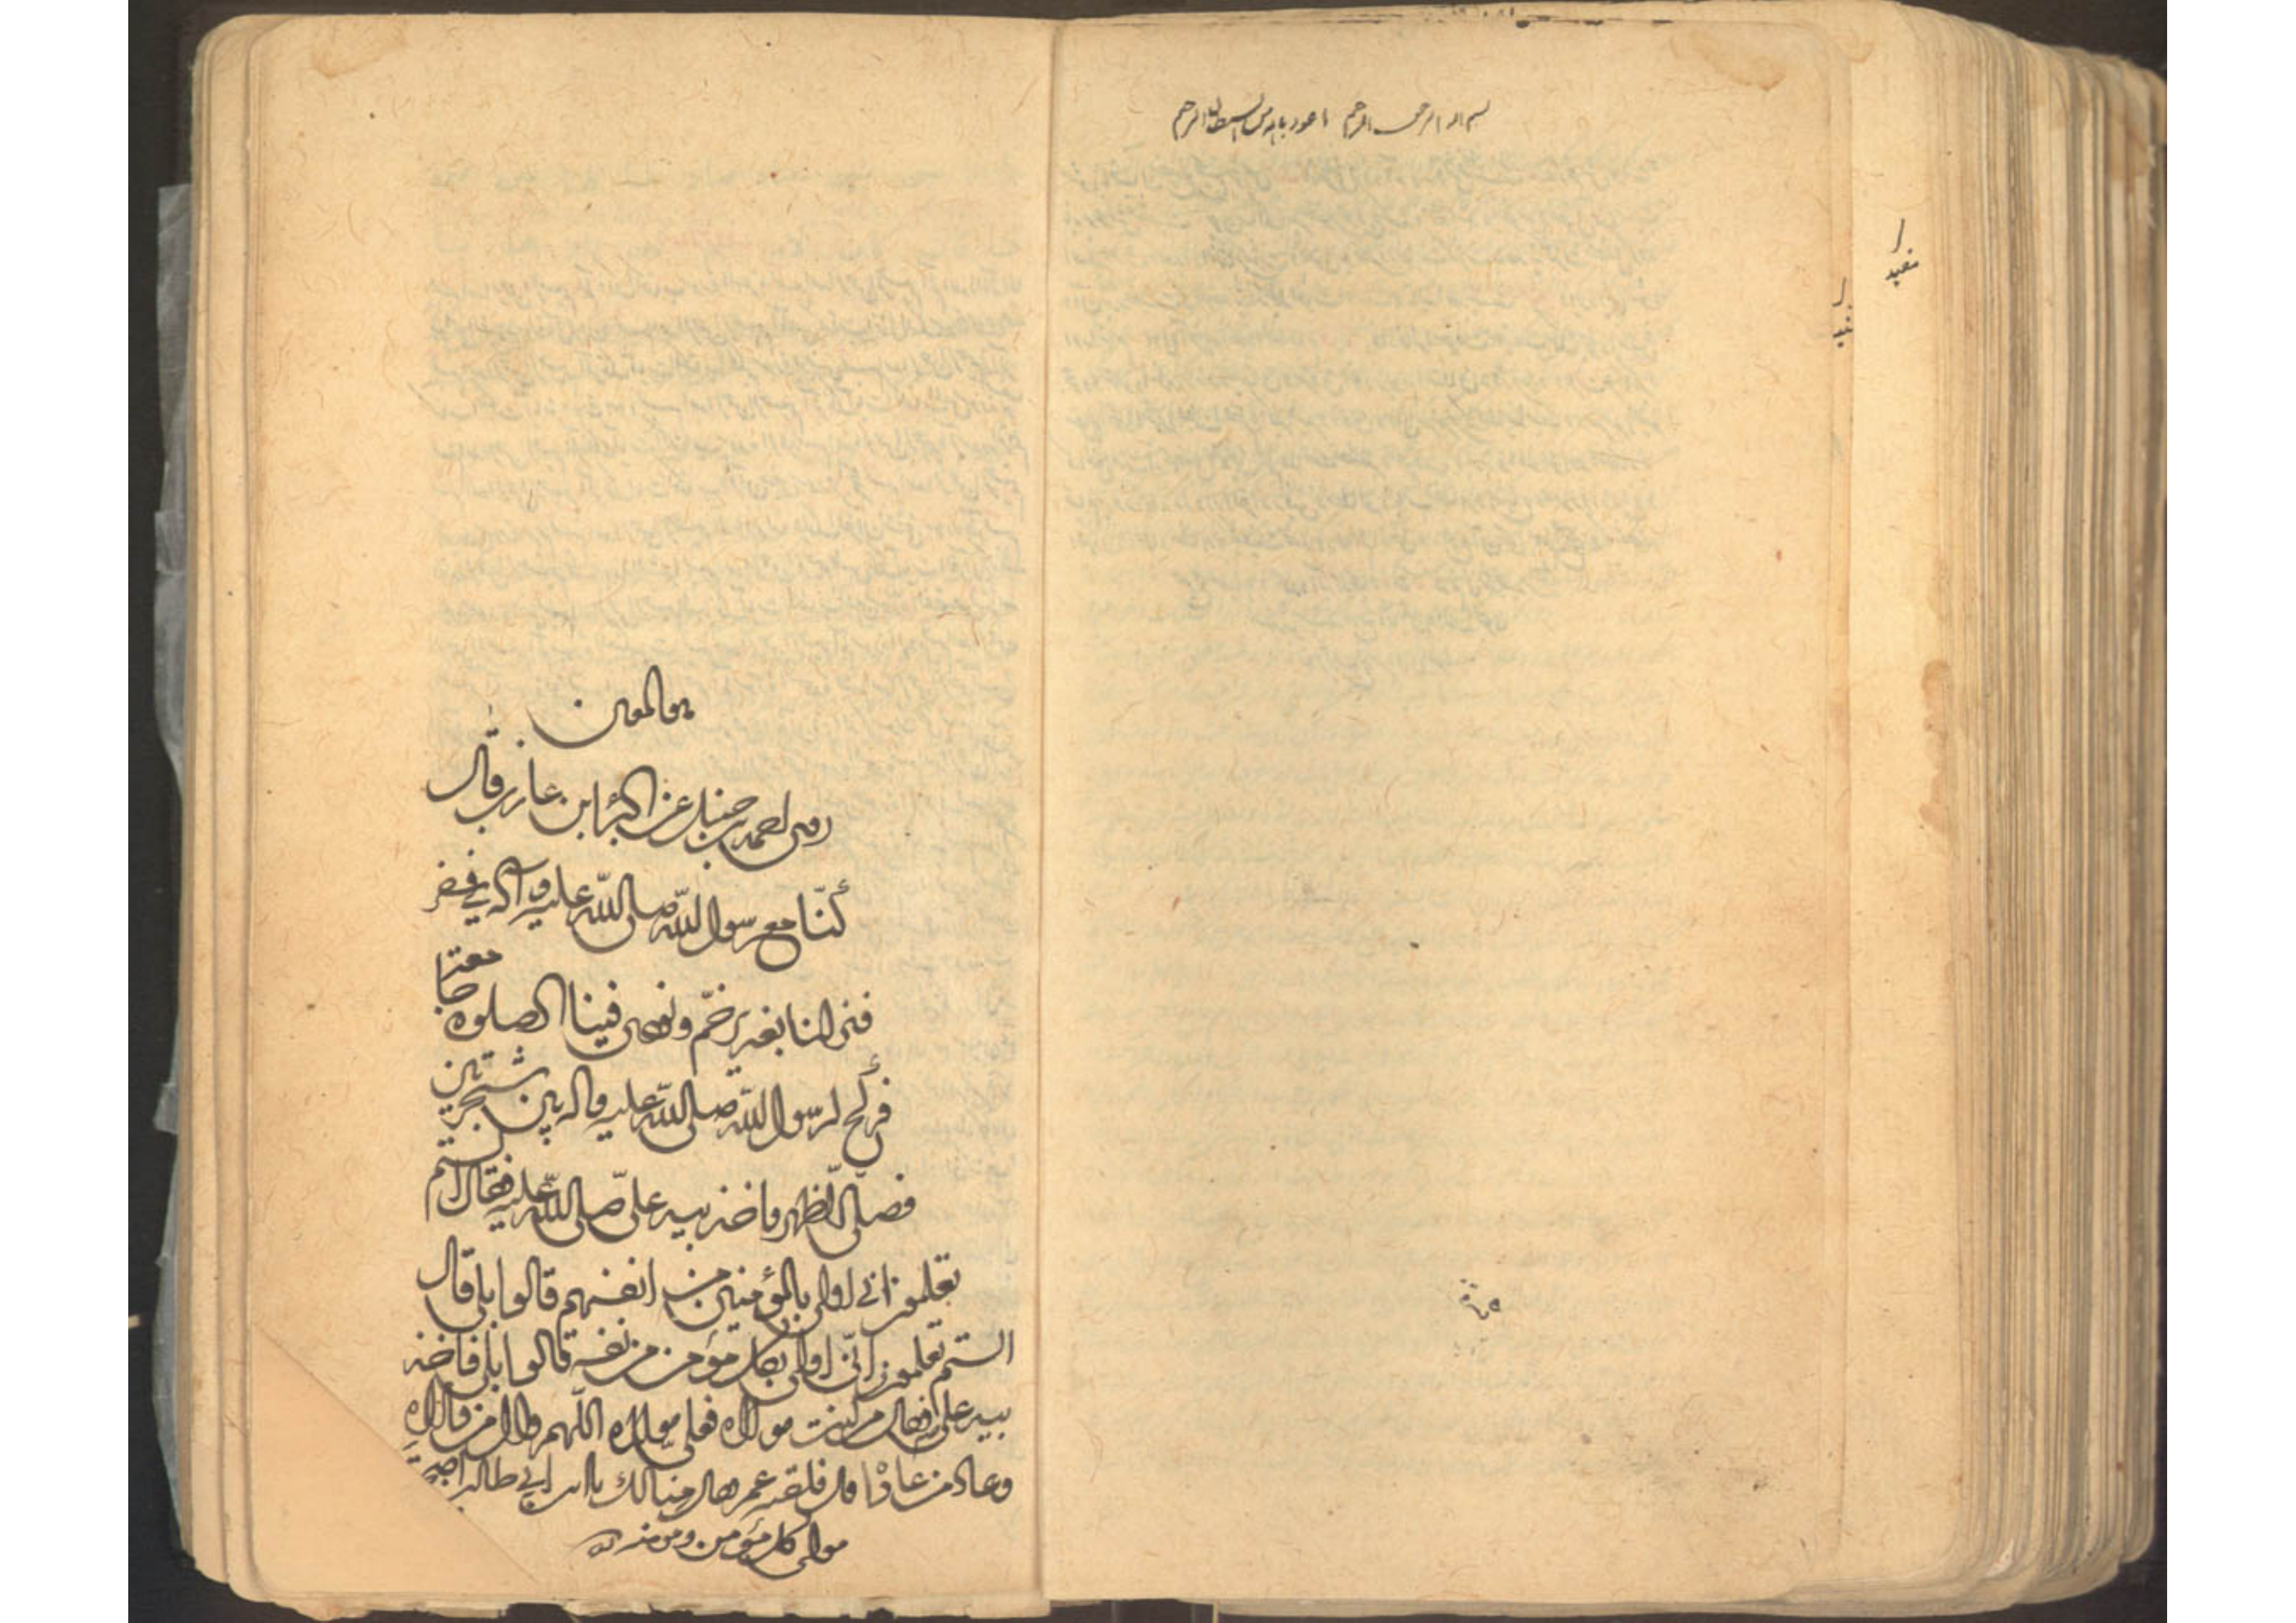 بسم الله الرحمن الرحیم اعوذ بالله من الشیطان الرجیم
هو المعین
روی احمد بن حنبل عن البراء ابن عازب قال
کنّا مع رسول الله صلی الله علیه وآله في سفر
فنزلنا بغدیر خمّ ونودی فینا الصلوة جامعة
فکُسح لرسول الله صلی الله علیه واله بین شجرتین
فصلّی الظهر واخذ بید علی صلی الله علیه فقال الستم
تعلمون اني اولی بالمؤمنین من انفسهم قالوا بلی قال
الستم تعلمون انّي اولی بکل مؤمن من نفسه قالوا بلی فاخذ
بید علی فقال من کنت مولاه فعلی مولاه اللّهم وال من والاه
وعاد من عاداه قال فلقیه عمر فقال هنیا لك یا ابن ابي طالب اصبحت
مولی کل مؤمن ومؤمنة